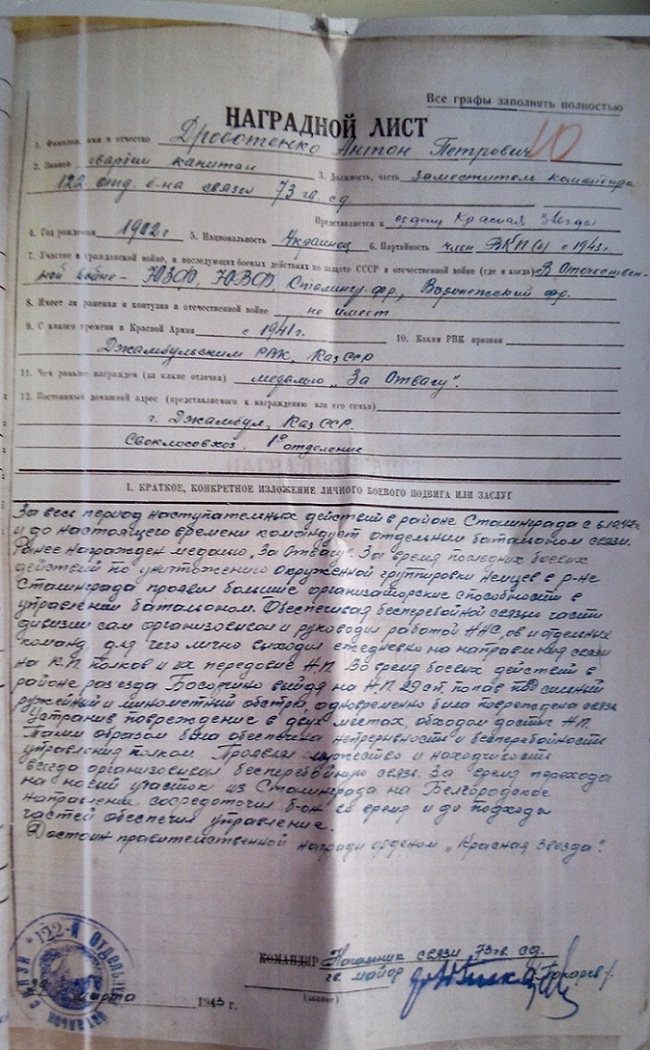 Все графы заполнять полностью
НАГРАДНОЙ ЛИСТ
10
1. Фамилия, имя и отчество Дроботенко Антон Петрович
2. Звание гвардии капитан 3. Должность, часть заместитель командира
122 отд. б-на связи 73 гв. сд.
Представляется к ордену Красная Звезда
4. Год рождения 1902 г 5. Национальность Украинец 6. Партийность член ВКП(б) с 1943 г.
7. Участие в гражданской войне, и последующих боевых действиях по защите СССР и отечественной войне (где и когда) В Отечествен-
ной войне - ЮЗФ, ЮВФ, Сталингр. фр., Воронежский фр.
8. Имеет ли ранения и контузии в отечественной войне не имеет
9. С какого времени в Красной Армии с 1941 г. 10. Каким РВК призван
Джамбульским РВК, Каз ССР
11. Чем раньше награжден (за какие отличия) медалью „За Отвагу".
12. Постоянный домашний адрес (представляемого к награждению или его семьи)
г. Джамбул, Каз ССР.
Свеклосовхоз. 1е отделение
I. КРАТКОЕ, КОНКРЕТНОЕ ИЗЛОЖЕНИЕ ЛИЧНОГО БОЕВОГО ПОДВИГА ИЛИ ЗАСЛУГ
За весь период наступательных действий в районе Сталинграда с
и до настоящего времени командует отдельным батальоном связи.
Ранее награжден медалью „За Отвагу". За время последних боевых
действий по уничтожению окруженной группировки немцев в р-не
Сталинграда проявил большие организаторские способности в
управлении батальоном. Обеспечивая бесперебойной связью части
дивизии сам организовывал и руководил работой и отдельных
команд, для чего лично выходил ежедневно на направления связи
на К.П. полков и их передовые Н.П. Во время боевых действий в
районе разъезда Басаргино выйдя на Н.П. 29 сп. попав под сильный
ружейный и минометный обстрел, одновременно была повреждена связь
Устранив повреждение в двух местах, обходом достиг Н.П.
Таким образом была обеспечена непрерывность и бесперебойность
управления полком. Проявляя мужество и находчивость
всегда организовывал бесперебойную связь. За время перехода
на новый участок из Сталинграда на Белгородское
направление сосредоточил б-он в время и до подхода
частей обеспечил управление.
Достоин правительственной награды орденом „Красная Звезда".
122-й Отдельный
батальон связи
КОМАНДИР Начальник связи 73 гв. сд.
гв. майор /Токарев/
(звание)
марта 1943 г.